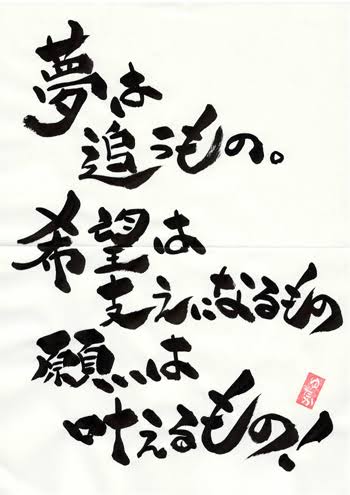 夢は
追うもの。
希望は
支えになるもの
願いは
叶えるもの!
ゆたか